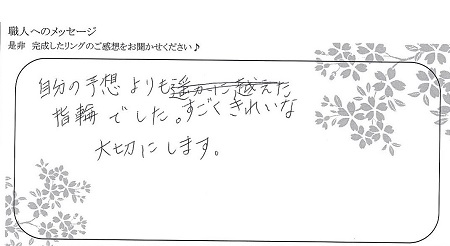 職人へのメッセージ
是非 完成したリングのご感想をお聞かせください♪
自分の予想よりも遥かに越えた
指輪でした。すごくきれいな
大切にします。